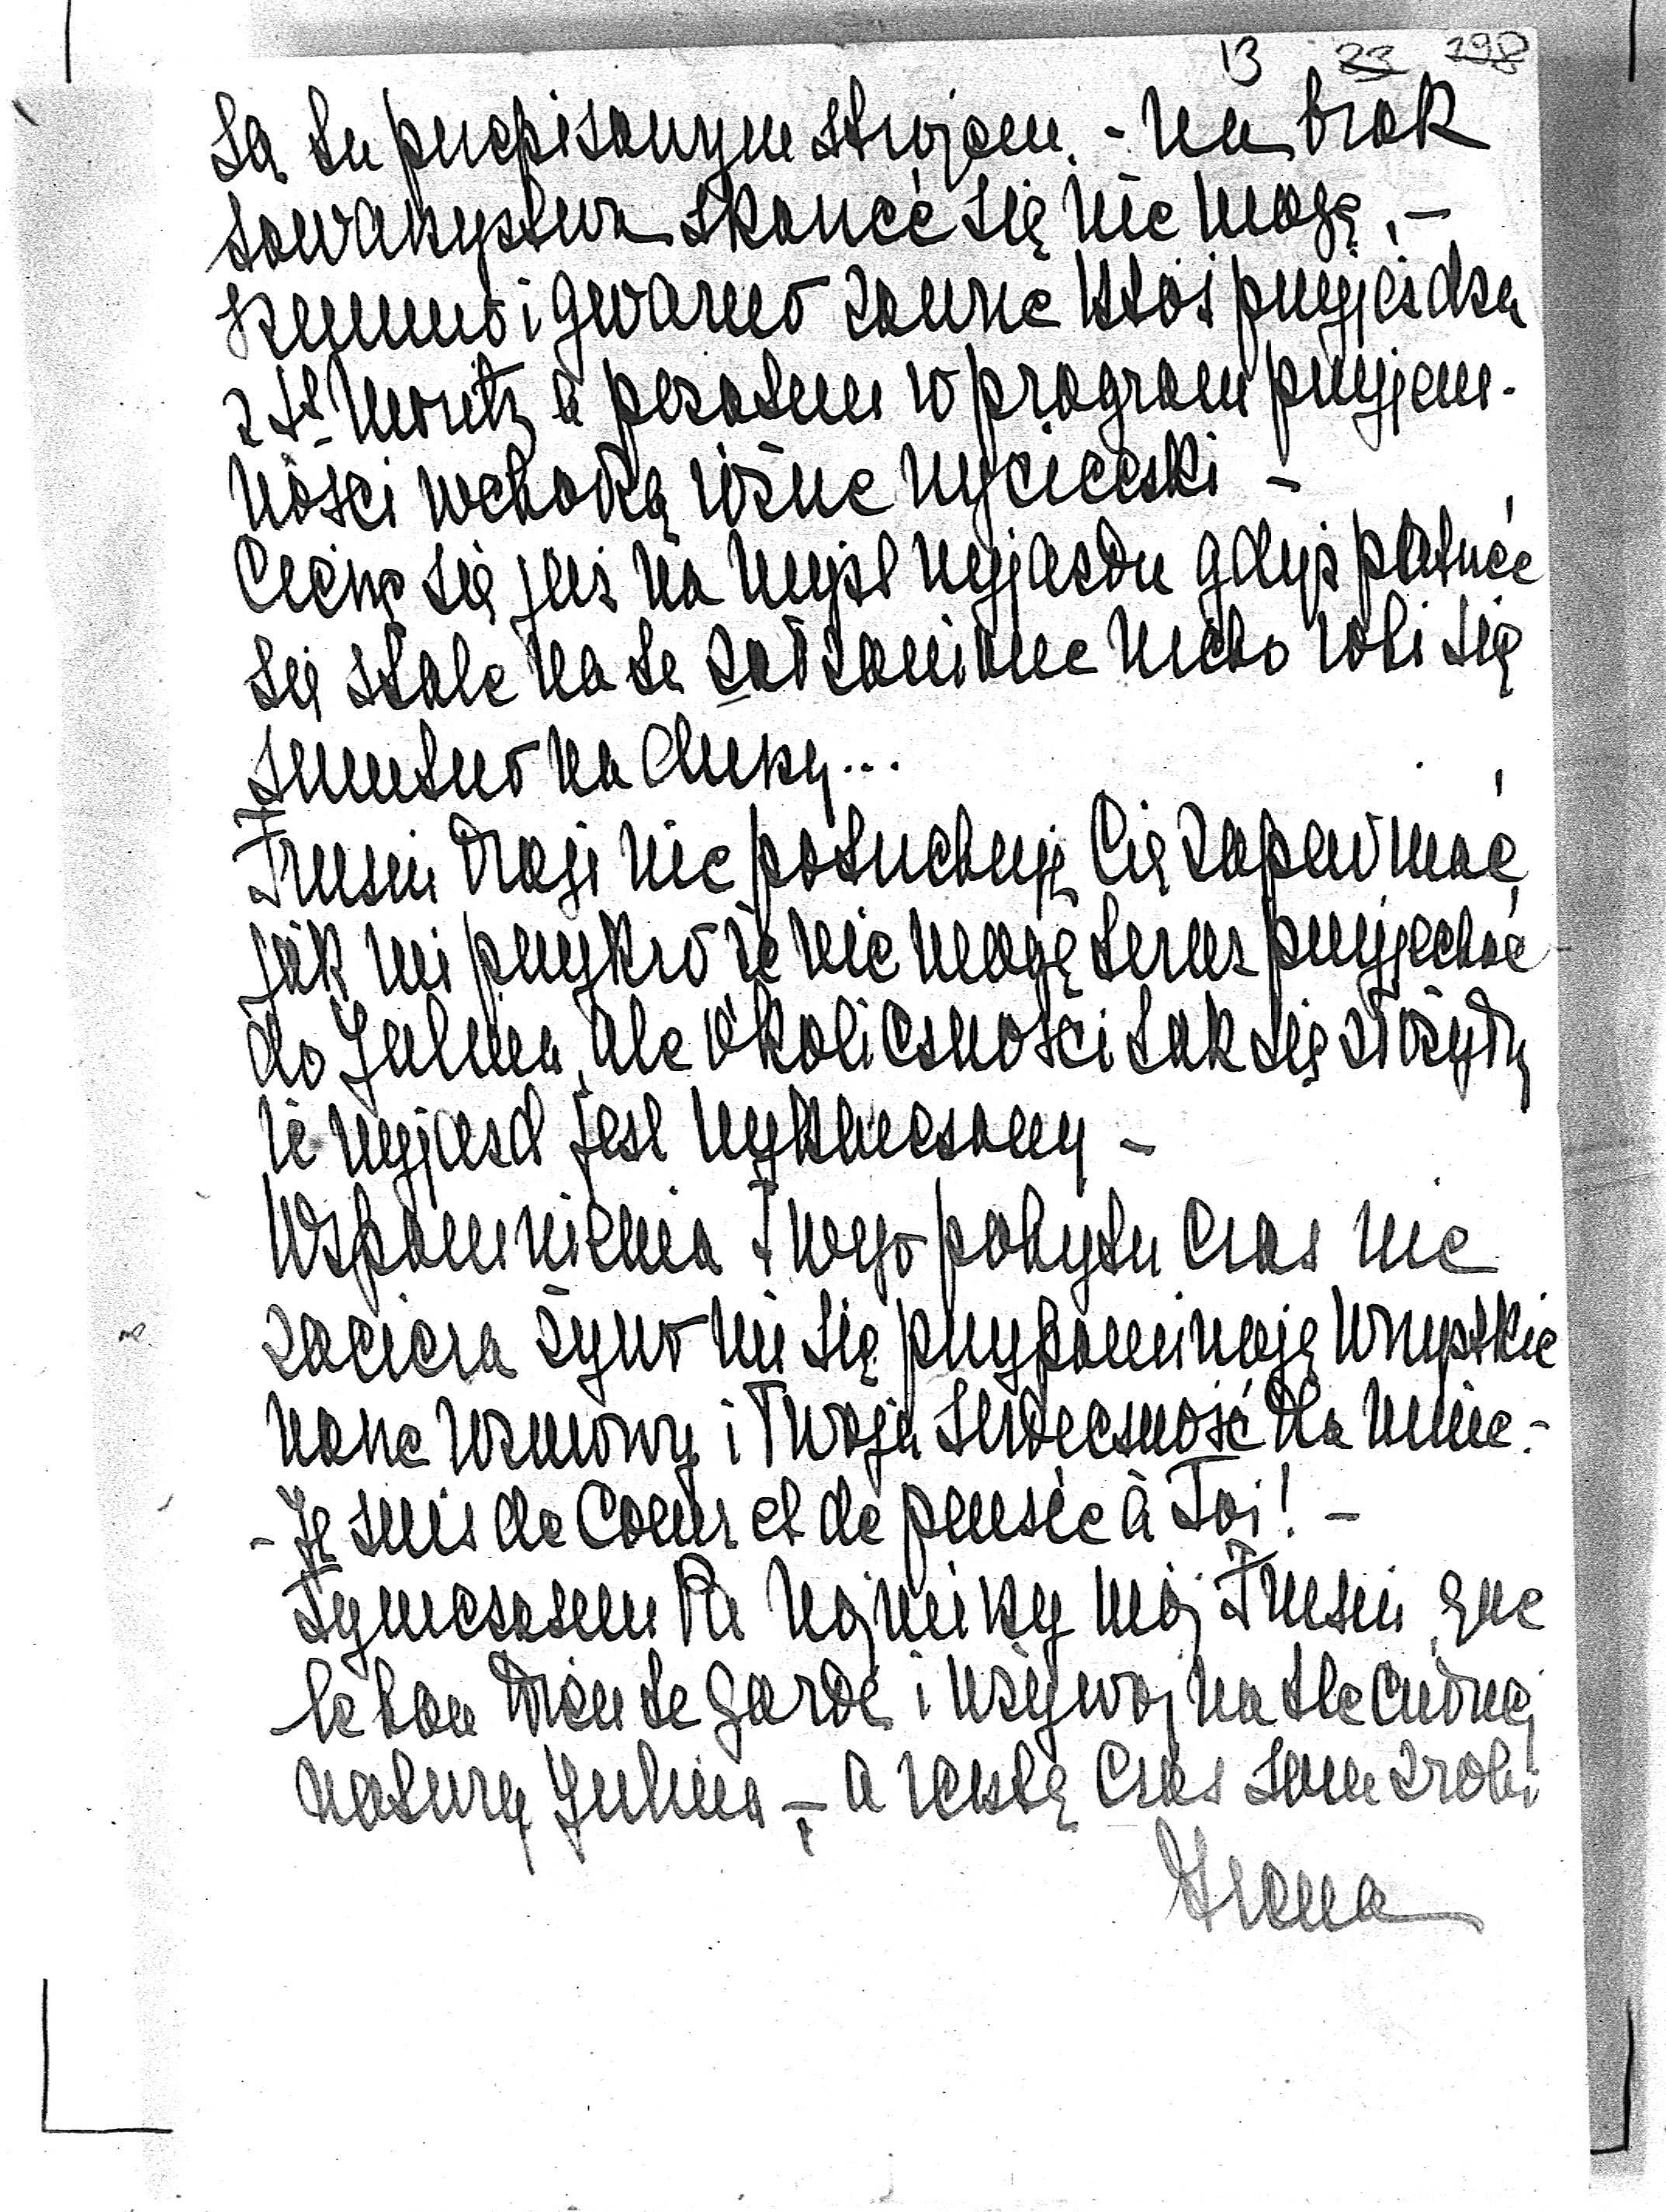 13 23 298
są tu przepisanym strojem. - Na brak
towarzystwa skarżyć się nie mogę. -
Rojno i gwarno zawsze ktoś przyjeżdża
z St Moritz a pozatem w program przyjem-
ności wchodzą różne wycieczki -
Cieszę się już na myśl wyjazdu gdyż patrząc
się stale na te zadżumione niebo robi się
smutno na duszy...
Frusiu drogi nie potrzebuję Cię zapewniać
jak mi przykro że nie mogę teraz przyjechać
do Julina, ale okoliczności tak się złożyły
że wyjazd jest wykluczony -
Wspomnienia Twego pobytu czas nie
zaciera żywo mi się przypominają wszystkie
nasze rozmowy i Twoja serdeczność dla mnie. -
- Je suis de Coeur et de pensée à Toi! -
Tymczasem Pa najmilszy mój Frusiu, que
le bon Dieu te garde i używaj na tle cudnej
natury Julina - a resztę czas sam zrobi